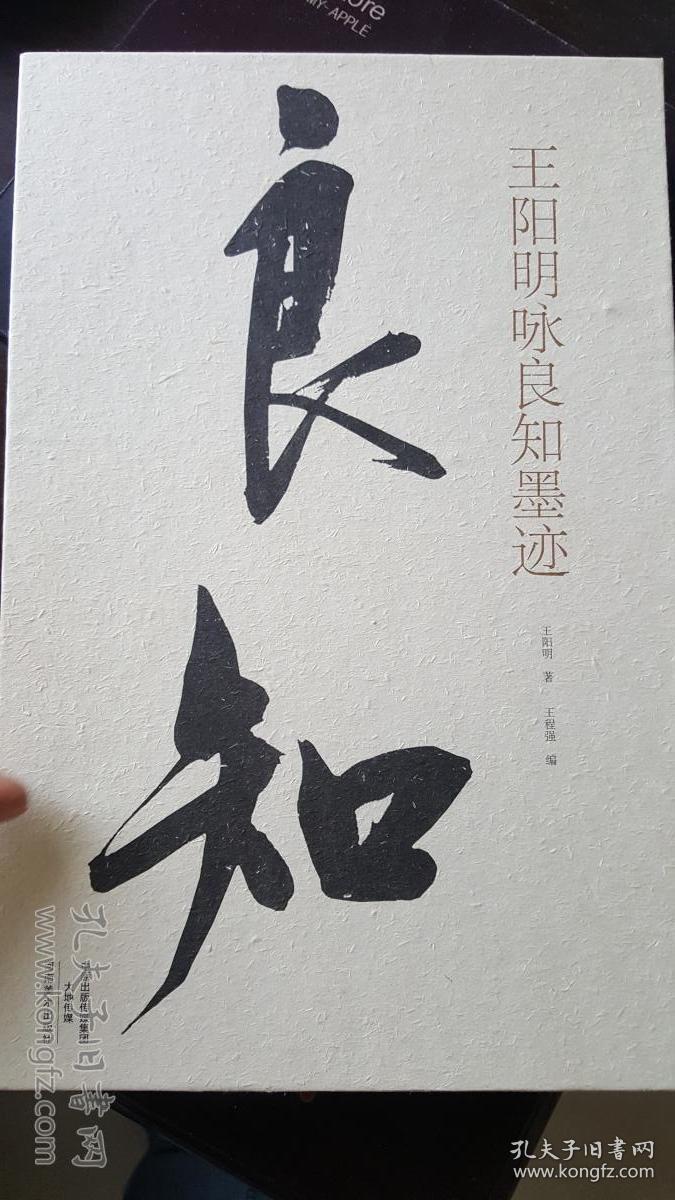 MY-APPLE
王阳明咏良知墨迹
王阳明 著 王程强 编
良知
大地传媒
孔夫子旧书网
www.kongfz.com
孔夫子旧书网
www.kongfz.com